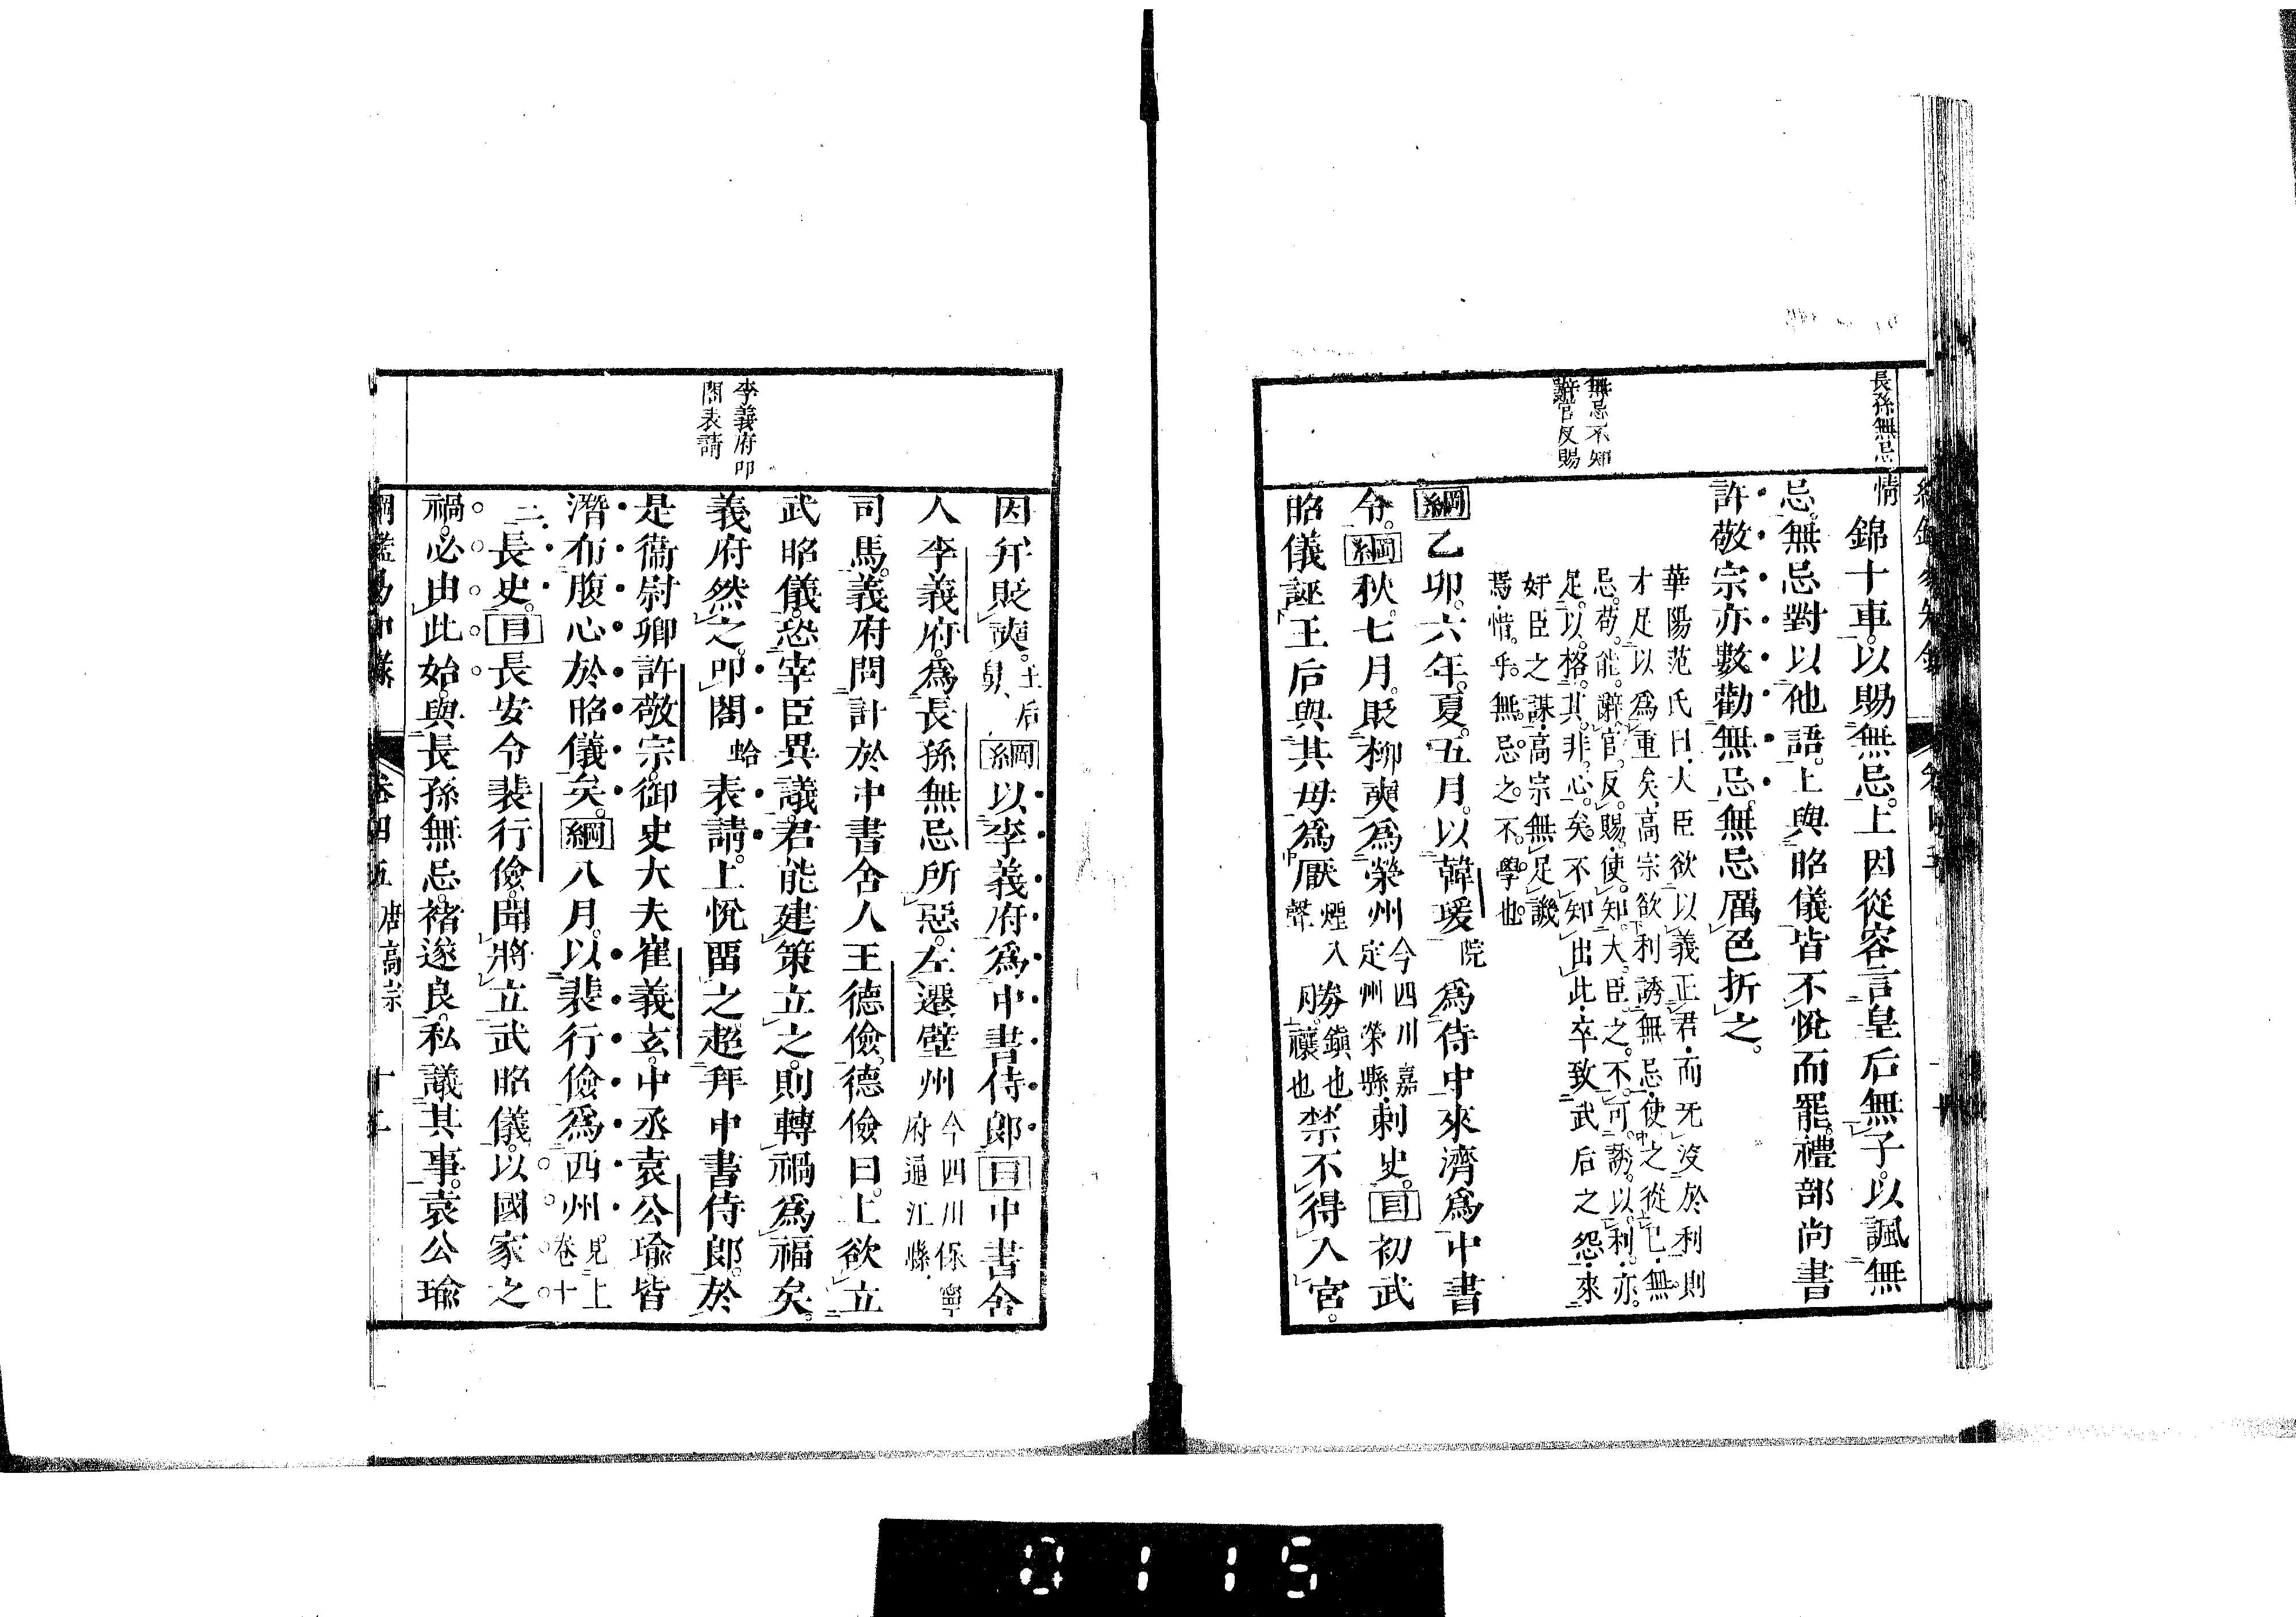 長孫無忌
無忌不知
辭官反賜
情
錦十車以賜無忌上因從容言皇后無子以諷無
忌無忌對以他語上與昭儀皆不悅而罷禮部尚書
許敬宗亦數勸無忌無忌厲色折之
華陽范氏曰大臣欲以義正君而旡没於利則
才足以爲重矣高宗欲利誘無忌使之從己無
忌苟能辭官反賜使知大臣之不可誘以利亦
足以格其非心矣不知出此卒致武后之怨來
奸臣之謀高宗無足譏
焉惜乎無忌之不學也
綱乙卯六年夏五月以韓瑗院爲侍中來濟爲中書
令綱秋七月貶柳奭爲榮州今四川嘉定州榮縣刺史目初武
昭儀誣王后與其母爲厭煙入聲勝鎮也禳也禁不得入宮
李義府叩
閤表請
因并貶奭王后舅綱以李義府爲中書侍郎目中書舍
人李義府爲長孫無忌所惡左遷壁州今四川保寧府通江縣
司馬義府問計於中書舍人王德儉德儉曰上欲立
武昭儀恐宰臣異議君能建策立之則轉禍爲福矣
義府然之叩閤蛤表請上悅畱之超拜中書侍郎於
是衞尉卿許敬宗御史大夫崔義玄中丞袁公瑜皆
潛布腹心於昭儀矣綱八月以裴行儉爲西州見上卷十二
長史目長安令裴行儉聞將立武昭儀以國家之
禍必由此始與長孫無忌褚遂良私議其事袁公瑜
綱鑑易知錄 卷四五 唐高宗 十二